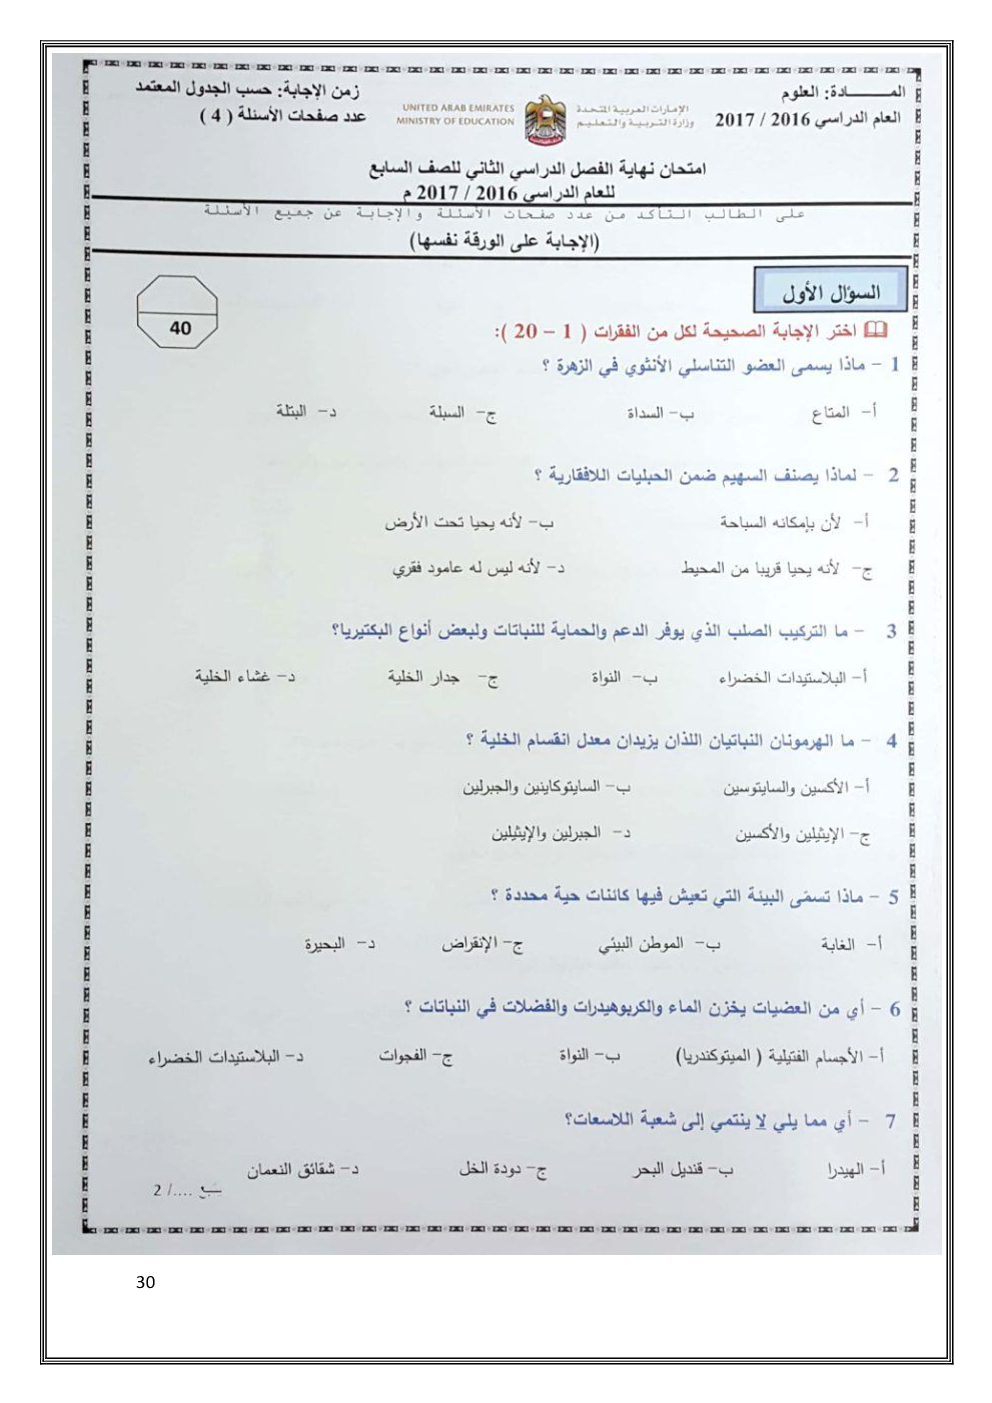 المــــــــادة: العلوم
زمن الإجابة: حسب الجدول المعتمد
العام الدراسي 2016 / 2017
الإمارات العربية المتحدة
وزارة التربية والتعليم
UNITED ARAB EMIRATES
MINISTRY OF EDUCATION
عدد صفحات الأسئلة ( 4 )
امتحان نهاية الفصل الدراسي الثاني للصف السابع
للعام الدراسي 2016 / 2017 م
على الطالب التأكد من عدد صفحات الأسئلة والإجابة عن جميع الأسئلة
(الإجابة على الورقة نفسها)
السؤال الأول
40
اختر الإجابة الصحيحة لكل من الفقرات ( 1 – 20 ):
1 – ماذا يسمى العضو التناسلي الأنثوي في الزهرة ؟
أ– المتاع ب– السداة ج– السبلة د– البتلة
2 – لماذا يصنف السهيم ضمن الحبليات اللافقارية ؟
أ– لأن بإمكانه السباحة ب– لأنه يحيا تحت الأرض
ج– لأنه يحيا قريبا من المحيط د– لأنه ليس له عامود فقري
3 – ما التركيب الصلب الذي يوفر الدعم والحماية للنباتات ولبعض أنواع البكتيريا؟
أ– البلاستيدات الخضراء ب– النواة ج– جدار الخلية د– غشاء الخلية
4 – ما الهرمونان النباتيان اللذان يزيدان معدل انقسام الخلية ؟
أ– الأكسين والسايتوسين ب– السايتوكاينين والجبرلين
ج– الإيثيلين والأكسين د– الجبرلين والإيثيلين
5 – ماذا تسمّى البيئة التي تعيش فيها كائنات حية محددة ؟
أ– الغابة ب– الموطن البيئي ج– الإنقراض د– البحيرة
6 – أي من العضيات يخزن الماء والكربوهيدرات والفضلات في النباتات ؟
أ– الأجسام الفتيلية ( الميتوكندريا) ب– النواة ج– الفجوات د– البلاستيدات الخضراء
7 – أي مما يلي لا ينتمي إلى شعبة اللاسعات؟
أ– الهيدرا ب– قنديل البحر ج– دودة الخل د– شقائق النعمان
يتبع ..../ 2
30